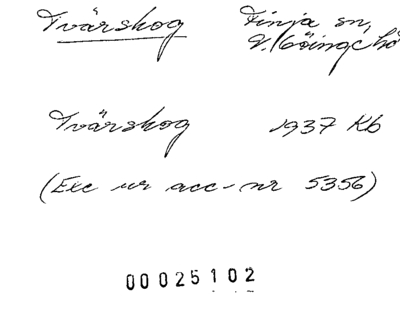 Tvärskog Finja sn,
V. Göinge hd
Tvärskog 1937 Kb
(Exc ur acc-nr 5356)
00025102